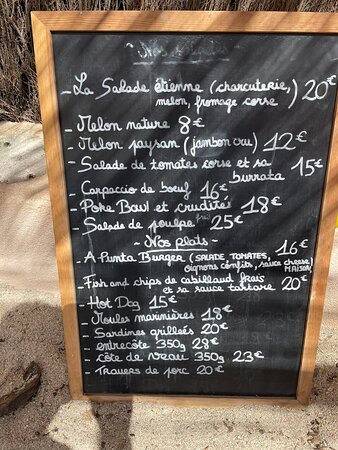 - La Salade étienne (charcuterie, melon, fromage corse) 20€
- Melon nature 8€
- Melon paysan (jambon cru) 12€
- Salade de tomates corse et sa burrata 15€
- Carpaccio de boeuf 16€
- Poke Bowl et crudités 18€
- Salade de poulpe 25€
~ Nos plats ~
- A Punta Burger (SALADE, TOMATES, oignons confits, sauce cheese MAISON) 16€
- Fish and chips de cabillaud frais et sa sauce tartare 20€
- Hot Dog 15€
- Moules marinières 18€
- Sardines grillées 20€
- entrecôte 350g 28€
- côte de veau 350g 23€
- Travers de porc 20€